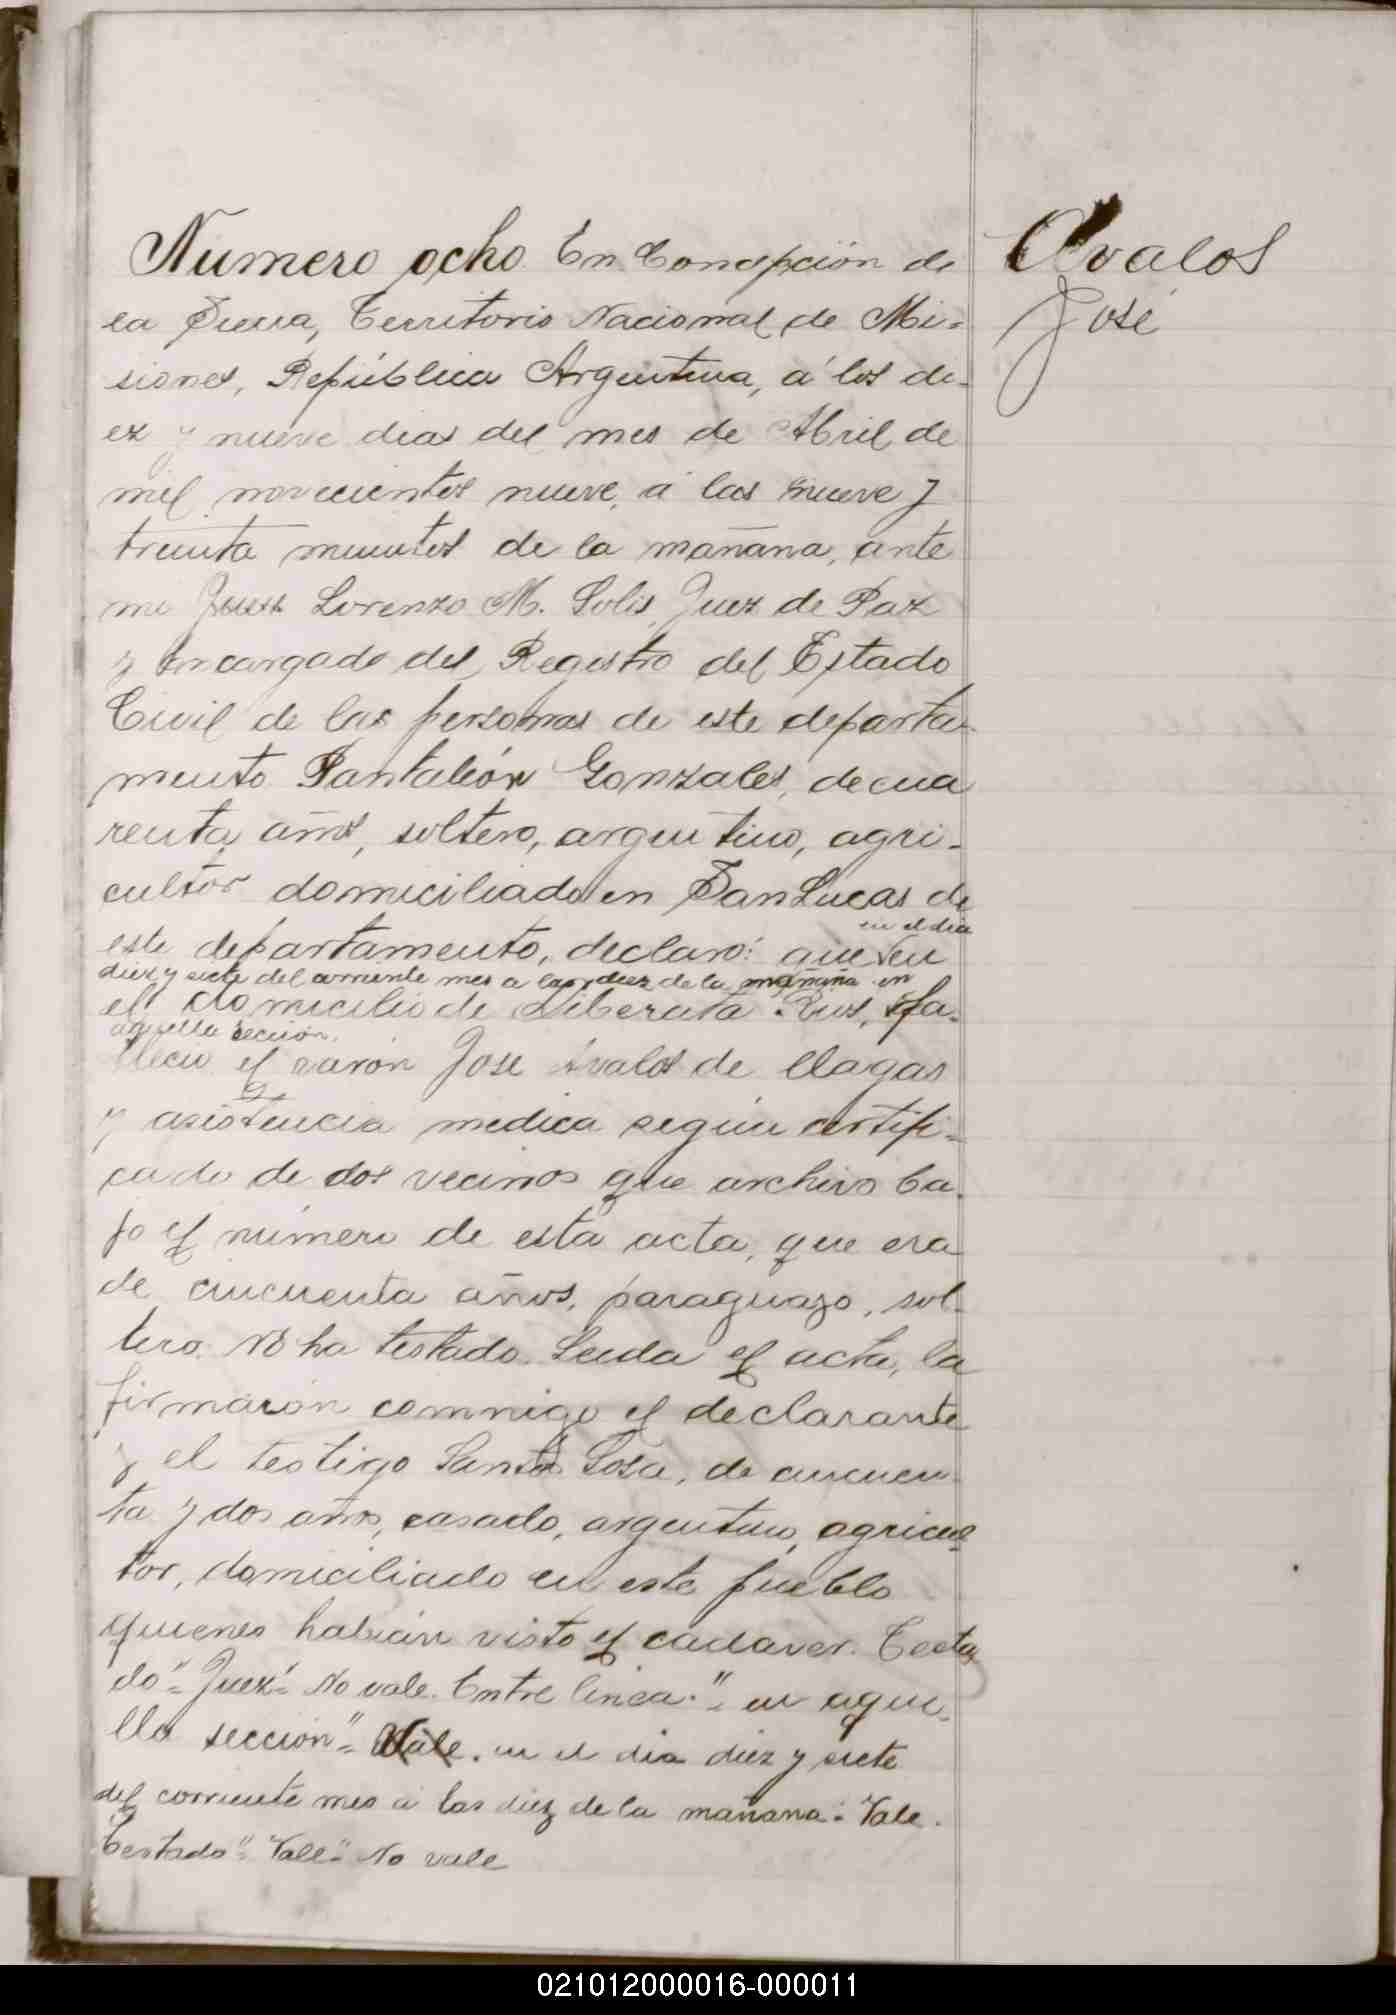 Numero ocho En Concepción de
la Sierra, Territorio Nacional de Mi-
siones, República Argentina, á los di-
ez y nueve dias del mes de Abril de
mil novecientos nueve, á las nueve y
treinta minutos de la mañana, ante
mi Juez Lorenzo M. Solis, Juez de Paz
y encargado del Registro del Estado
Civil de las personas de este departa-
mento Pantaleón Gonzales, de cua
renta años, soltero, argentino, agri-
cultor domiciliado en San Lucas de
en el dia
este departamento, declaró: que en
diez y siete del corriente mes a las diez de la mañana en
el domicilio de Liberata Rios, fa-
aquella sección.
llecio el varón José Avalos de llagas
y asistencia medica según certifi-
cado de dos vecinos que archivo ba-
jo el número de esta acta, que era
de cincuenta años, paraguayo, sol-
tero. No ha testado. Leida el acta, la
firmarón conmigo el declarante
y el testigo Santos Sosa, de cincuen-
ta y dos años, casado, argentino, agricul-
tor, domiciliado en este pueblo
quienes habian visto el cadaver. Testa
do "Juez" No vale. Entre linea: "en aque-
lla sección" Vale. en el dia diez y siete
del corriente mes a las diez de la mañana: Vale.
Testado "Vale" No vale
Avalos
José
021012000016-000011